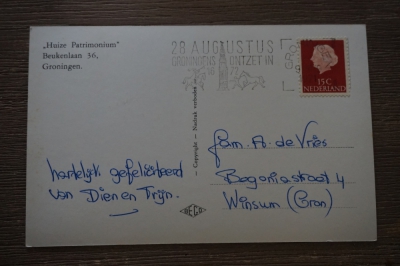 „Huize Patrimonium"
Beukenlaan 36,
Groningen.
28 AUGUSTUS
GRONINGENS ONTZET IN
16 72
15C
NEDERLAND
— Copyright - Nadruk verboden —
hartelijk gefeliciteerd
van Dien en Trijn.
Fam. A. de Vries
Begoniastraat 4
Winsum (Gron)